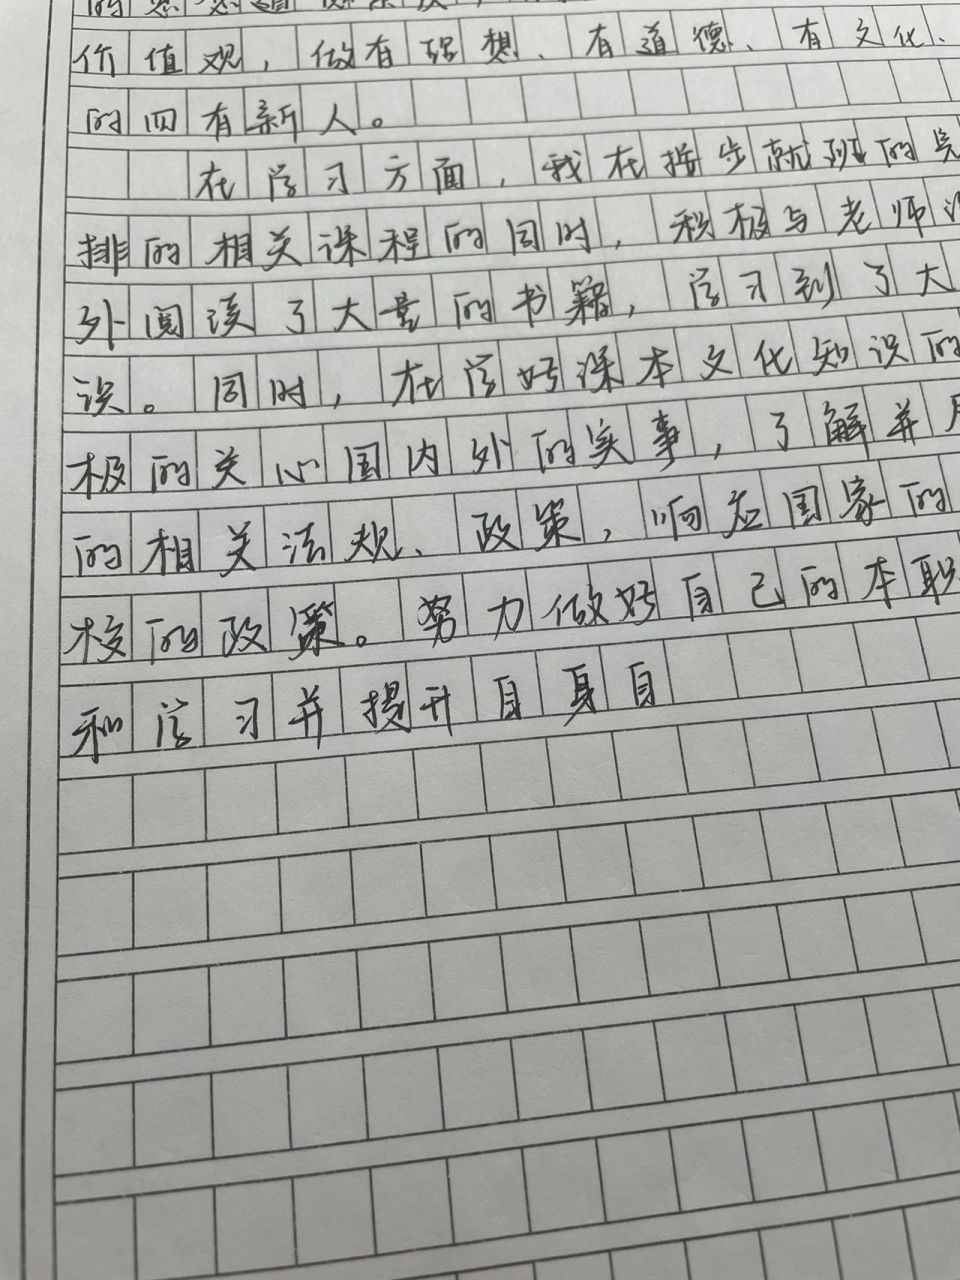 价值观，做有理想、有道德、有文化、
的四有新人。
在学习方面，我在按步就班的完
排的相关课程的同时，积极与老师
外阅读了大量的书籍，学习到了大
识。同时，在学好课本文化知识的
极的关心国内外的实事，了解并
的相关法规、政策，响应国家的
校的政策。努力做好自己的本职
和学习并提升自身自